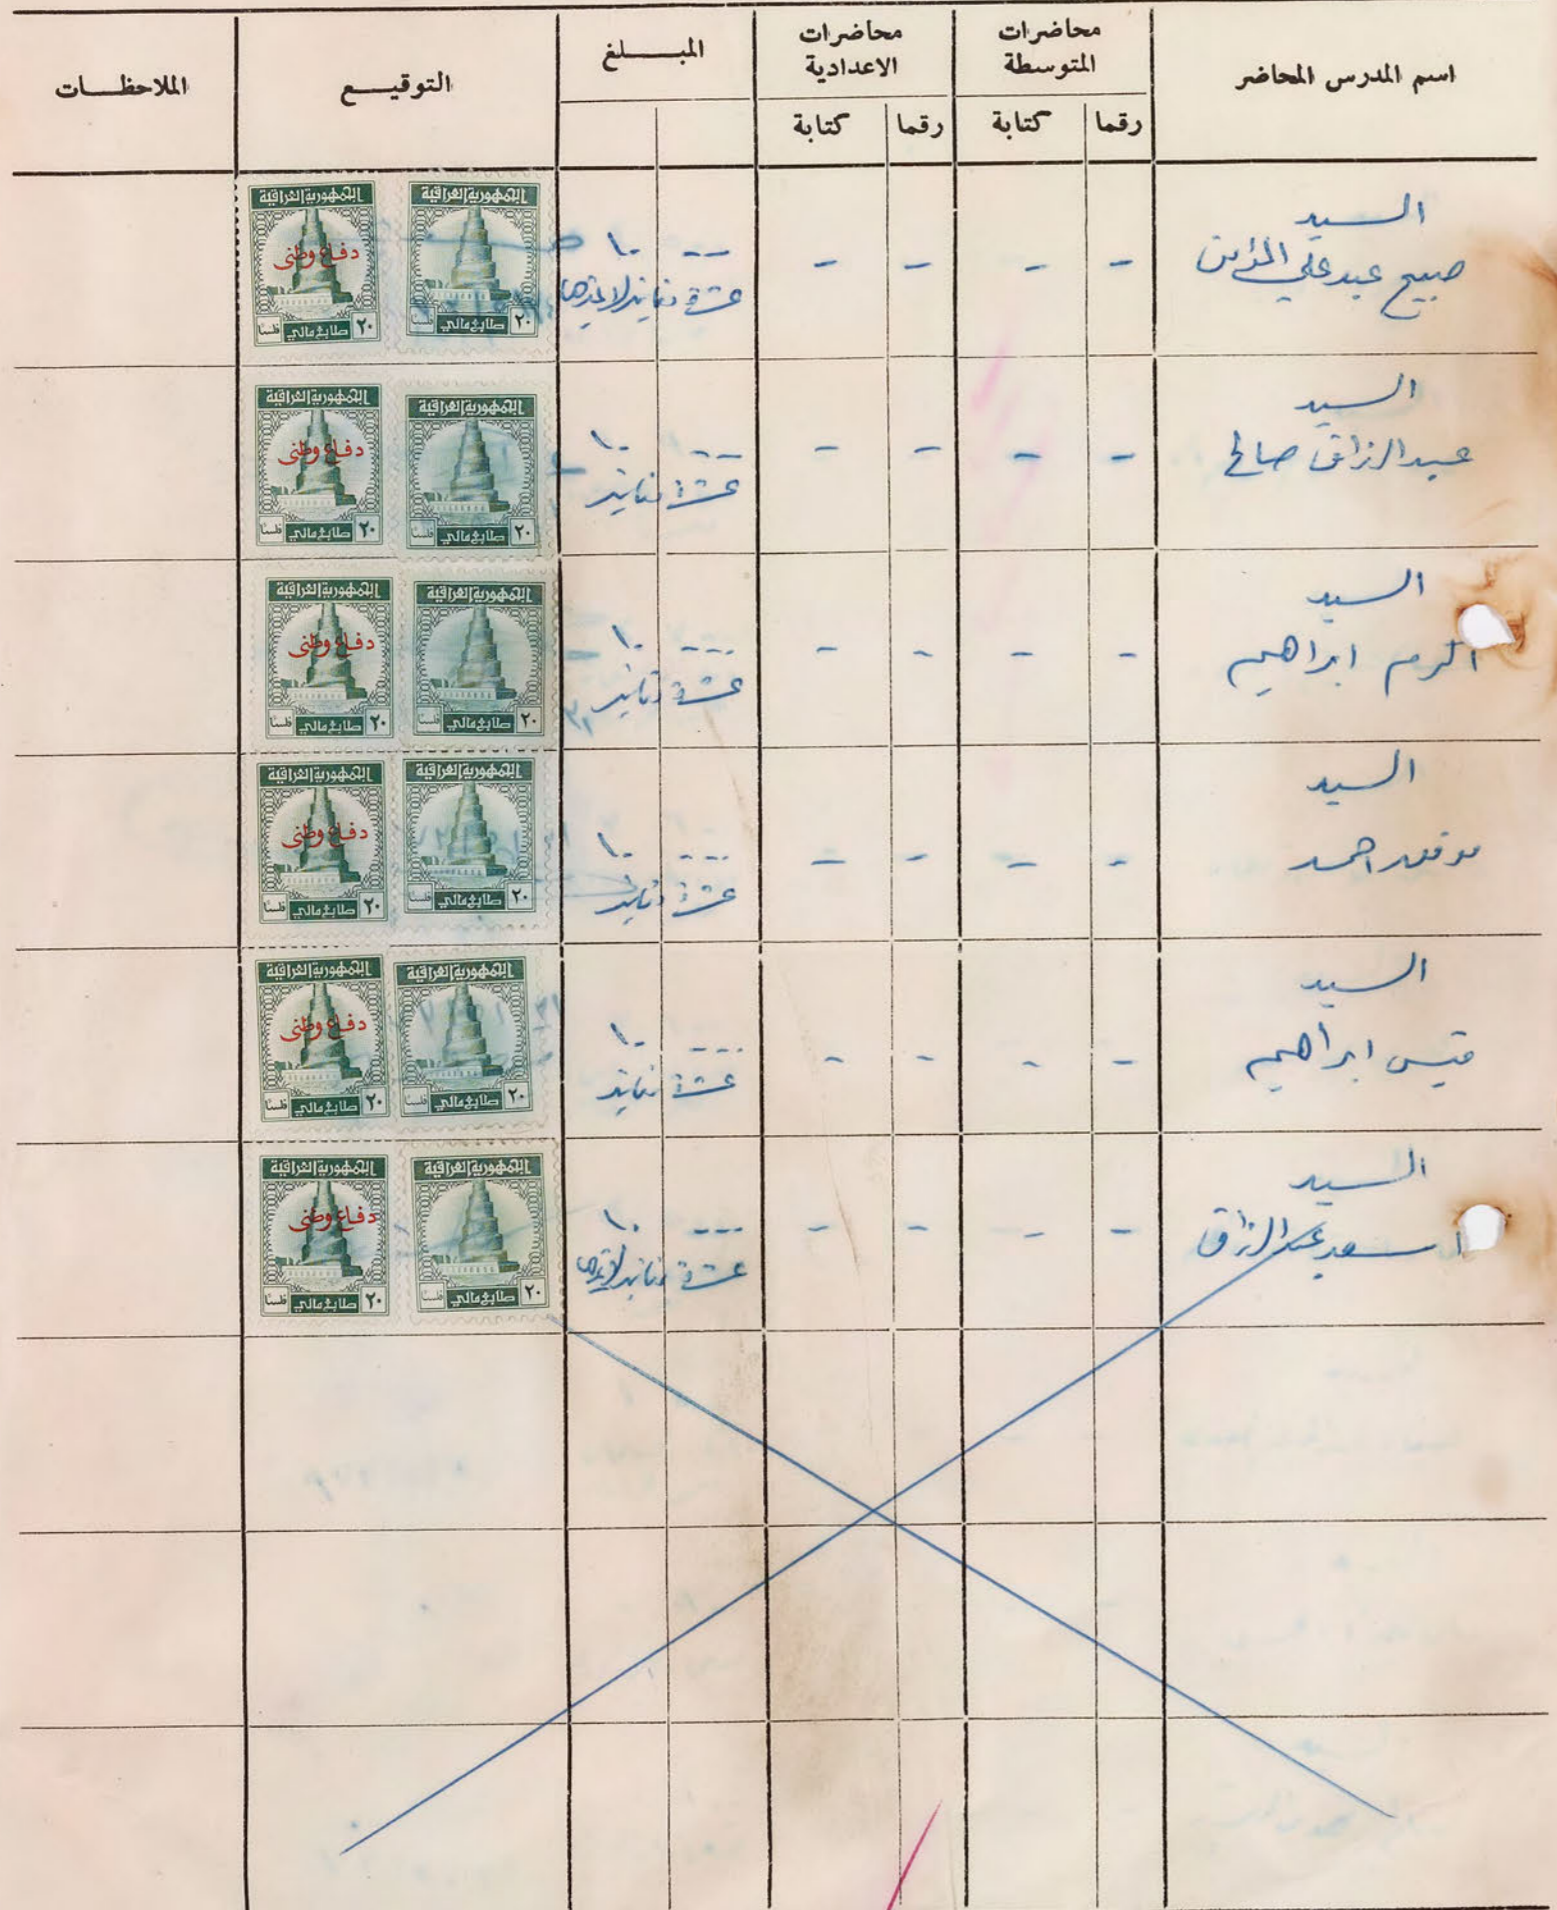 اسم المدرس المحاضر
محاضرات المتوسطة
رقما
كتابة
محاضرات الاعدادية
رقما
كتابة
المبلغ
التوقيع
الملاحظات
السيد
صبيح عبد علي
- - - -
--- ١٠
عشرة دنانير لا غيرها
الجمهورية العراقية
٢٠ طابع مالي فلسا
الجمهورية العراقية
دفاع وطني
٢٠ طابع مالي فلسا
السيد
عبد الرزاق صالح
- - - -
--- ١٠
عشرة دنانير
الجمهورية العراقية
٢٠ طابع مالي فلسا
الجمهورية العراقية
دفاع وطني
٢٠ طابع مالي فلسا
السيد
اكرم ابراهيم
- - - -
--- ١٠
عشرة دنانير
الجمهورية العراقية
٢٠ طابع مالي فلسا
الجمهورية العراقية
دفاع وطني
٢٠ طابع مالي فلسا
السيد
موفق احمد
- - - -
--- ١٠
عشرة دنانير
الجمهورية العراقية
٢٠ طابع مالي فلسا
الجمهورية العراقية
دفاع وطني
٢٠ طابع مالي فلسا
السيد
قيس ابراهيم
- - - -
--- ١٠
عشرة دنانير
الجمهورية العراقية
٢٠ طابع مالي فلسا
الجمهورية العراقية
دفاع وطني
٢٠ طابع مالي فلسا
السيد
اسعد عبد الرزاق
- - - -
--- ١٠
عشرة دنانير لا غيرها
الجمهورية العراقية
٢٠ طابع مالي فلسا
الجمهورية العراقية
دفاع وطني
٢٠ طابع مالي فلسا